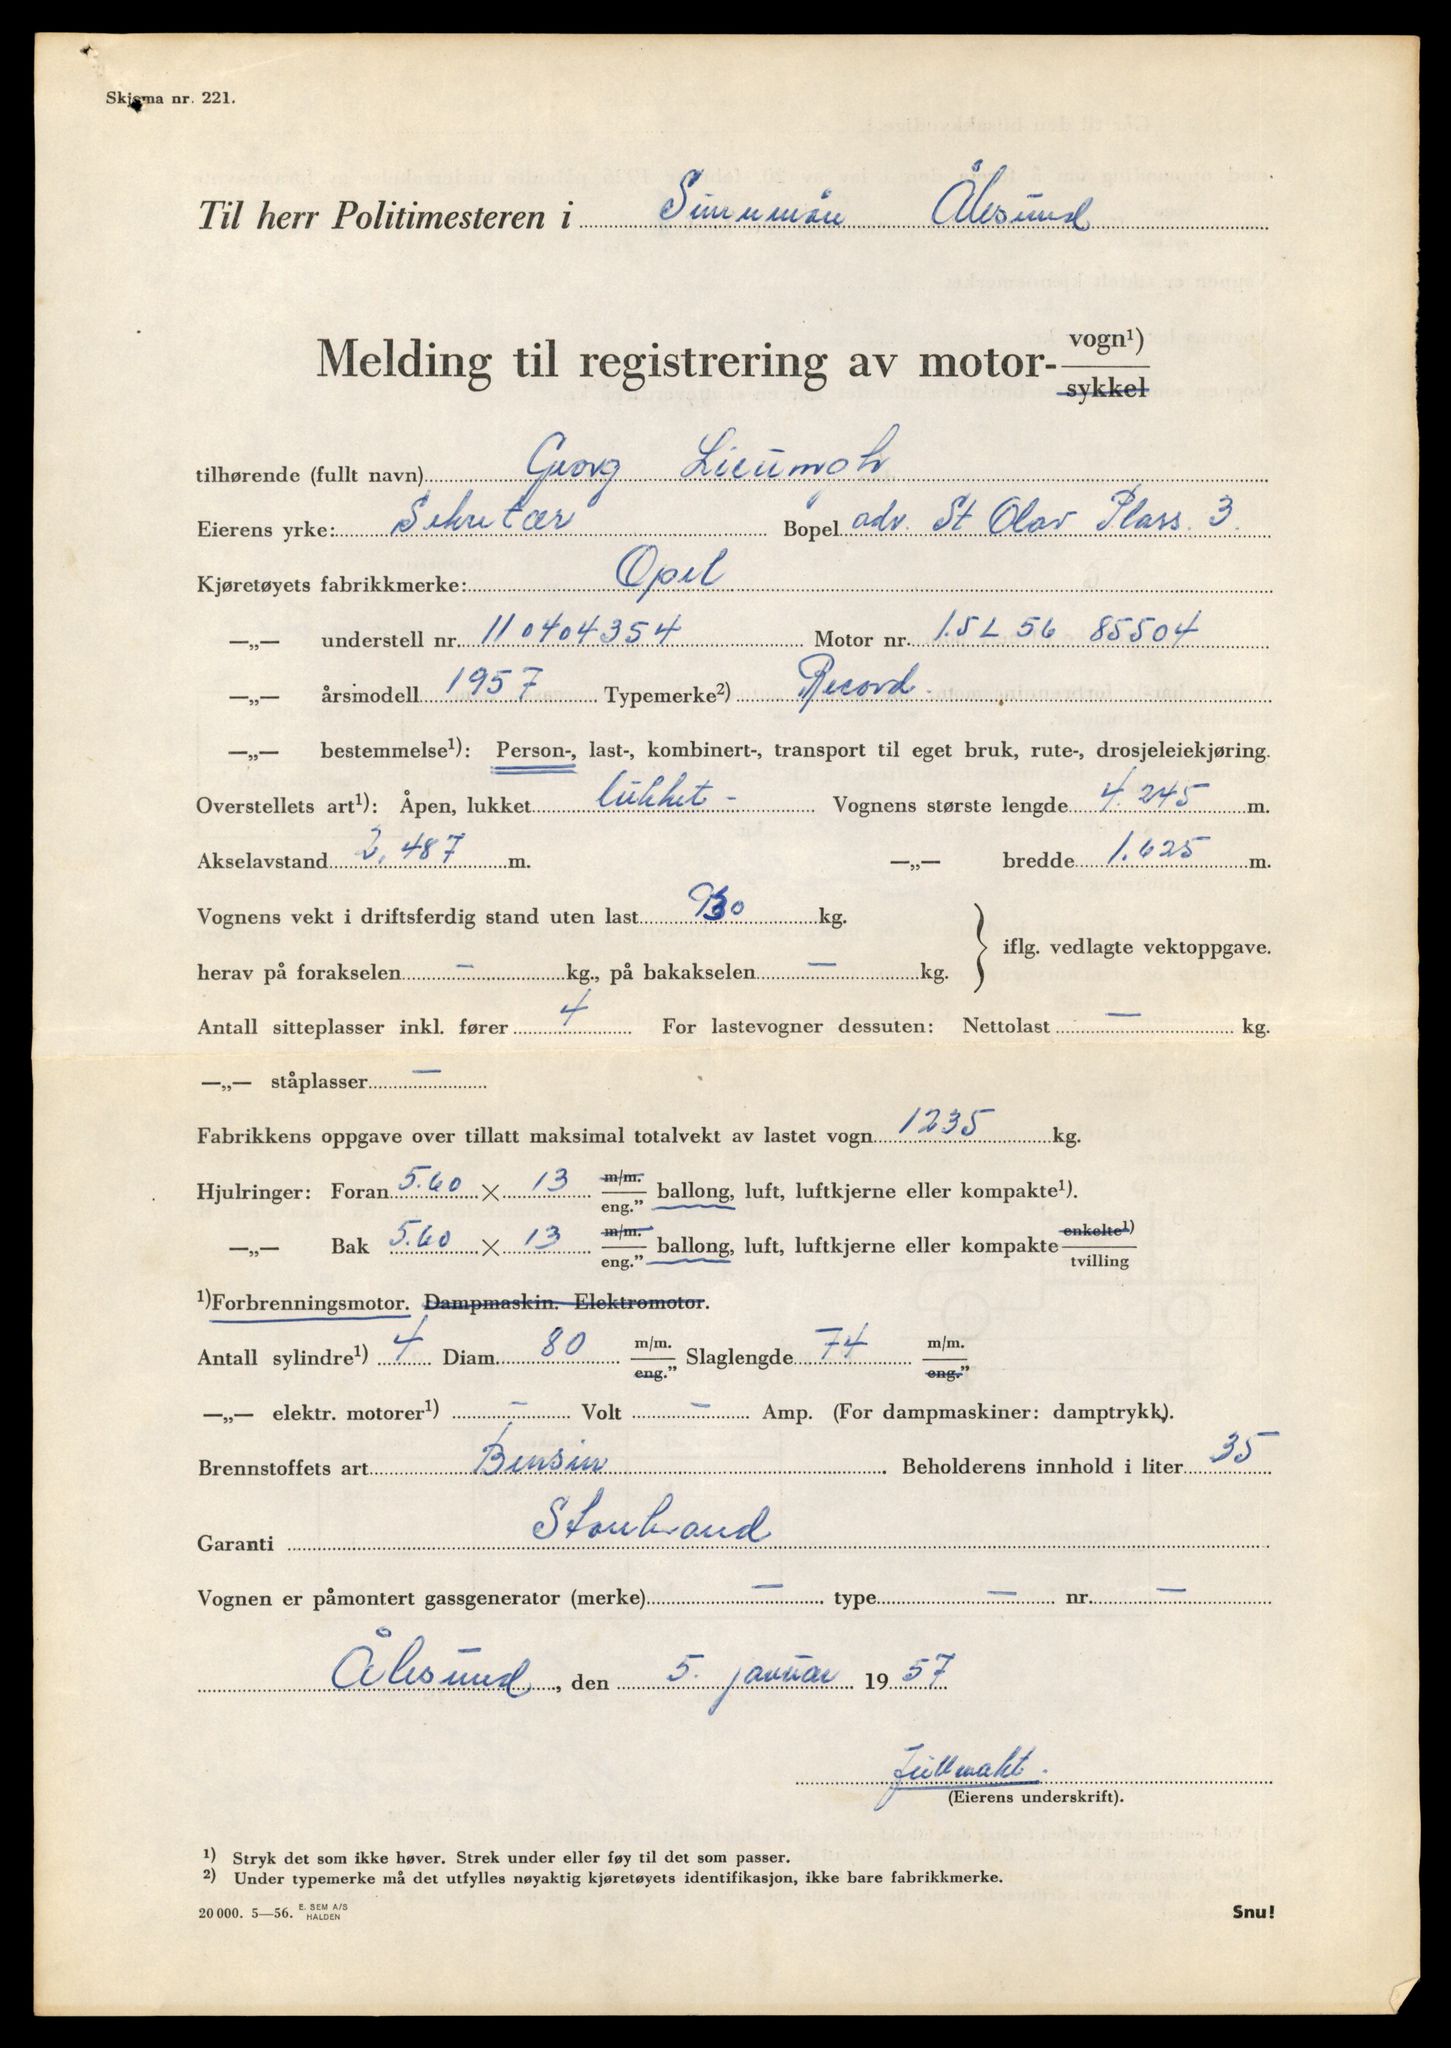 Skjema nr. 221.
Til herr Politimesteren i Sunnmøre Ålesund
Melding til registrering av motor- vogn¹)
sykkel
tilhørende (fullt navn) Georg
Eierens yrke: Sekretær Bopel adv. St Olav Plass. 3.
Kjøretøyets fabrikkmerke: Opel
—„— understell nr. 110404354 Motor nr. 1.5L 56 85504
—„— årsmodell 1957 Typemerke²) Record.
—„— bestemmelse¹): Person-, last-, kombinert-, transport til eget bruk, rute-, drosjeleiekjøring.
Overstellets art¹): Åpen, lukket lukket - Vognens største lengde 4.245 m.
Akselavstand 2,487 m. —„— bredde 1.625 m.
Vognens vekt i driftsferdig stand uten last kg.
iflg. vedlagte vektoppgave.
herav på forakselen — kg., på bakakselen — kg.
Antall sitteplasser inkl. fører 4 For lastevogner dessuten: Nettolast — kg.
—„— ståplasser —
Fabrikkens oppgave over tillatt maksimal totalvekt av lastet vogn 1235 kg.
Hjulringer: Foran 5.60 × 13 m/m. eng.” ballong, luft, luftkjerne eller kompakte¹).
—„— Bak 5.60 × 13 m/m. eng.” ballong, luft, luftkjerne eller kompakte enkelte¹) tvilling
¹)Forbrenningsmotor. Dampmaskin. Elektromotor.
Antall sylindre¹) 4 Diam. 80 m/m. eng.” Slaglengde 74 m/m. eng.”
—„— elektr. motorer¹) — Volt — Amp. (For dampmaskiner: damptrykk).
Brennstoffets art Bensin Beholderens innhold i liter 35
Garanti Storebrand
Vognen er påmontert gassgenerator (merke) — type — nr. —
Ålesund, den 5. januar 1957
Fullmakt.
(Eierens underskrift).
¹) Stryk det som ikke høver. Strek under eller føy til det som passer.
²) Under typemerke må det utfylles nøyaktig kjøretøyets identifikasjon, ikke bare fabrikkmerke.
20 000. 5—56. E. SEM A/S HALDEN
Snu!